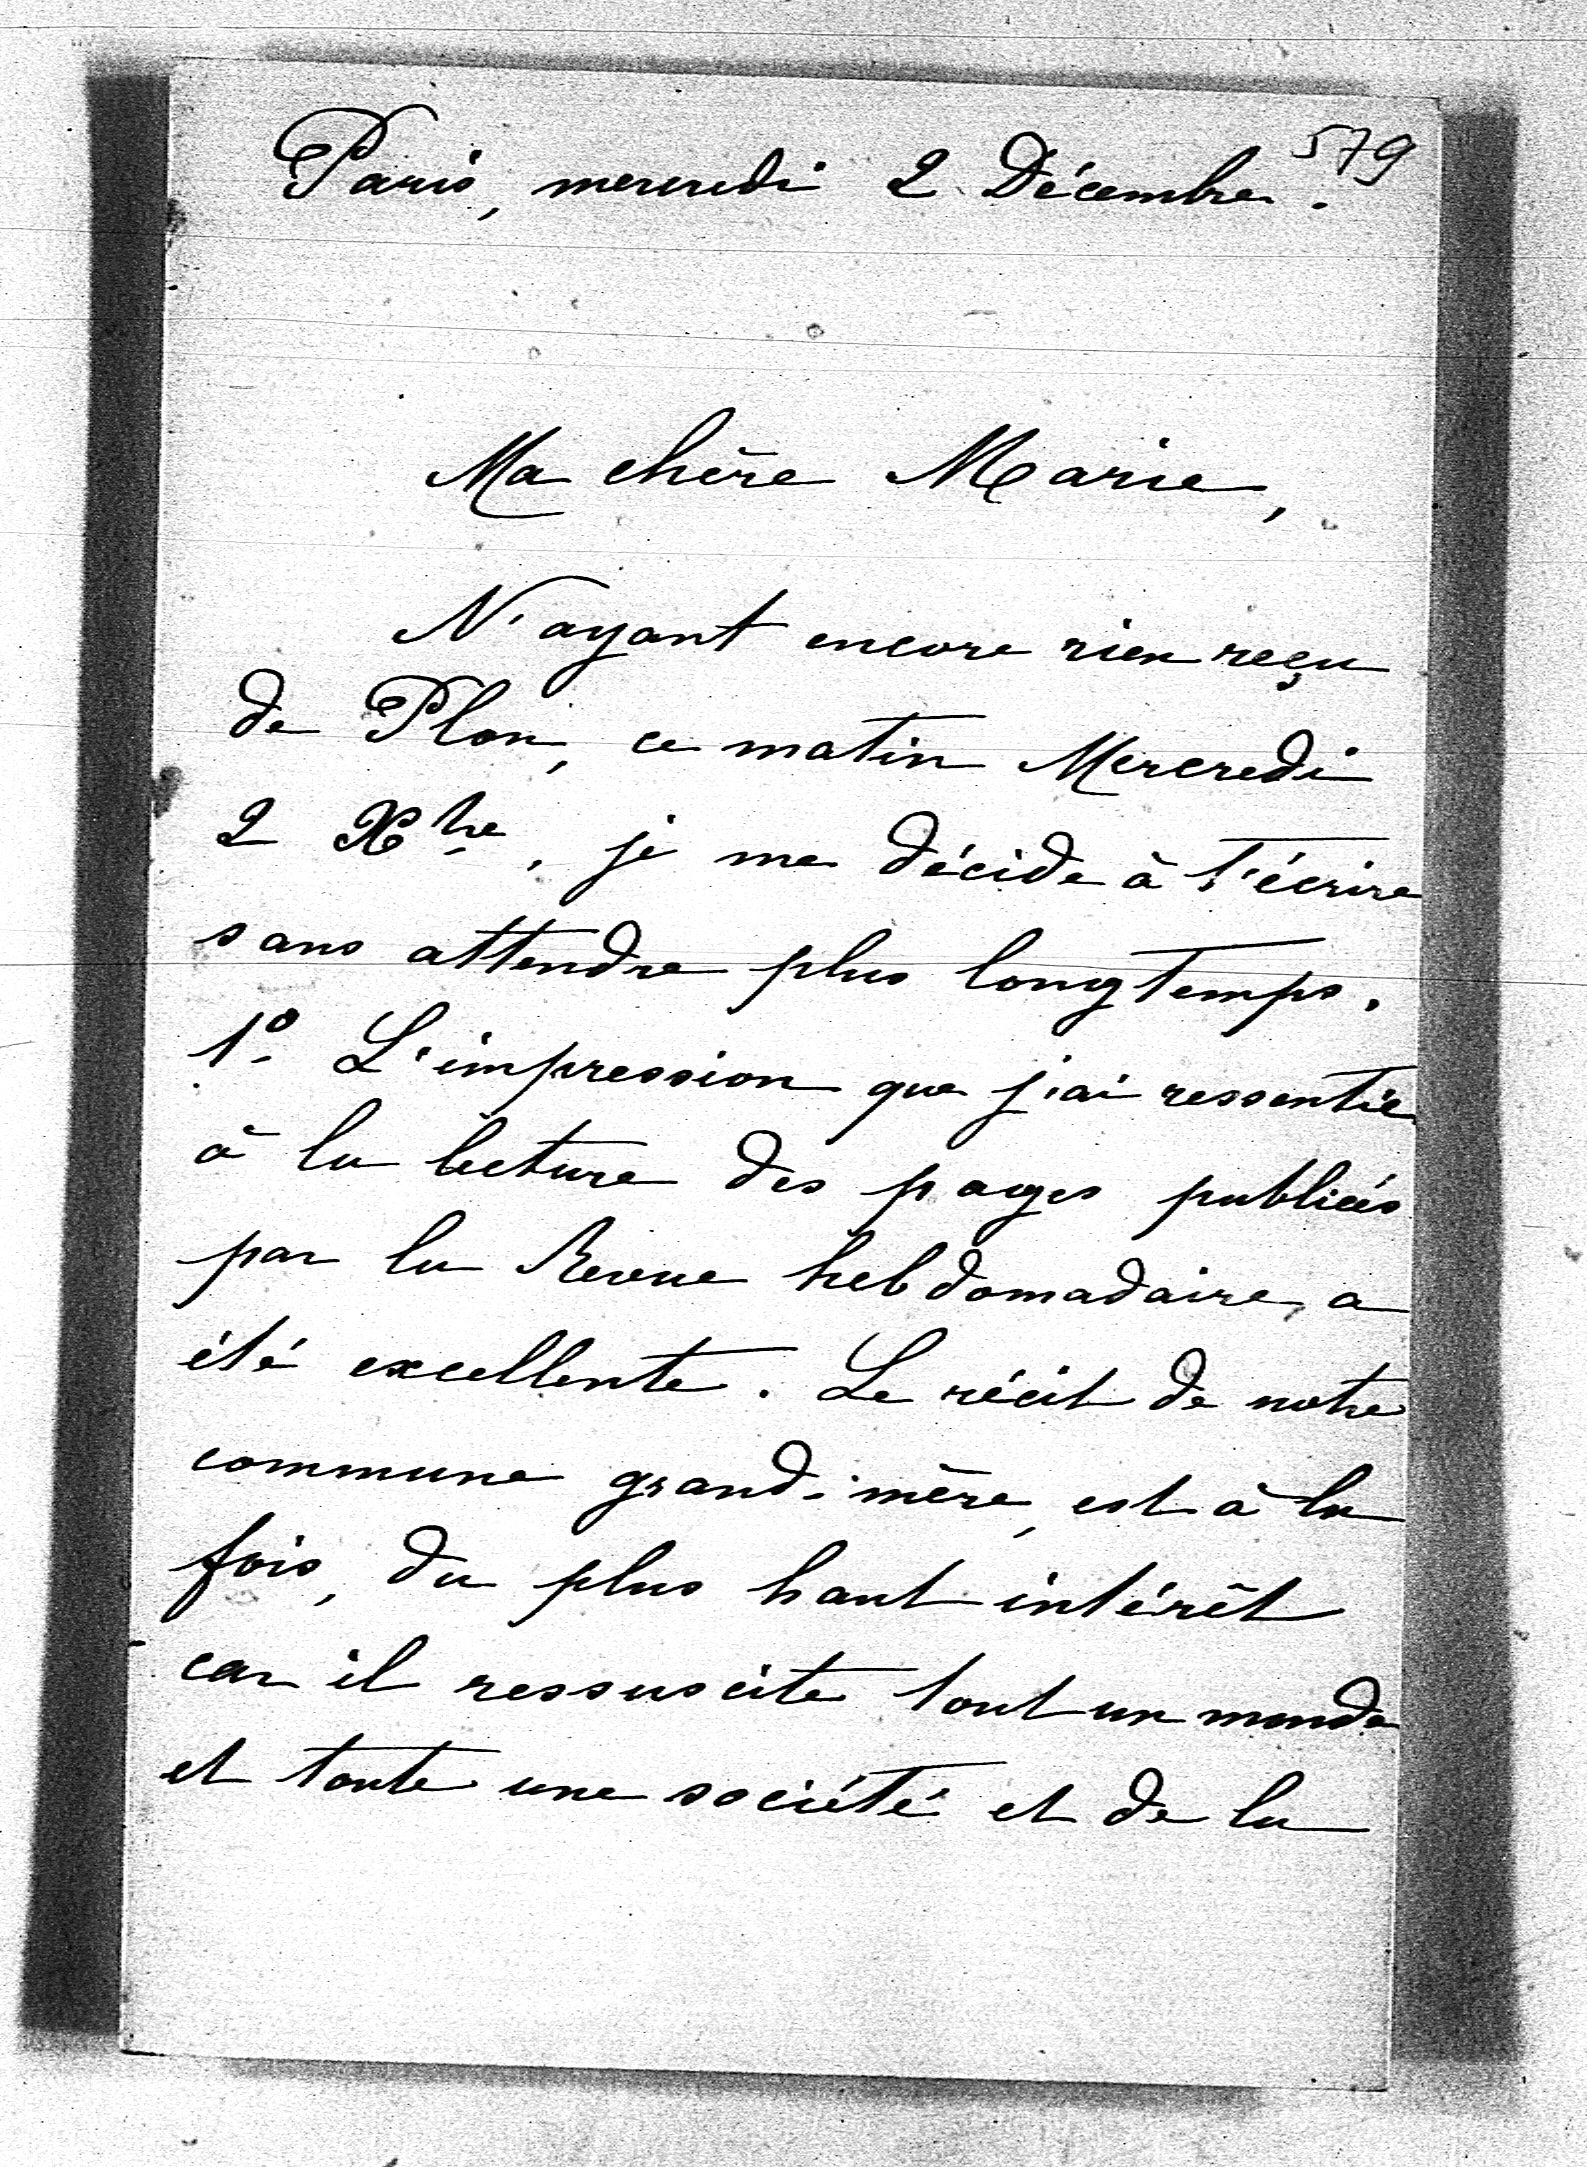 579
Paris, mercredi 2 Décembre.
Ma chère Marie,
N'ayant encore rien reçu
de Plon, ce matin Mercredi
2 Xbre, je me décide à t'écrire
sans attendre plus longtemps.
1º L'impression que j'ai ressentie
à la lecture des pages publiées
par la Revue hebdomadaire, a
été excellente. Le récit de notre
commune grand-mère, est à la
fois, du plus haut intérêt
car il ressuscite tout un monde
et toute une société et de la